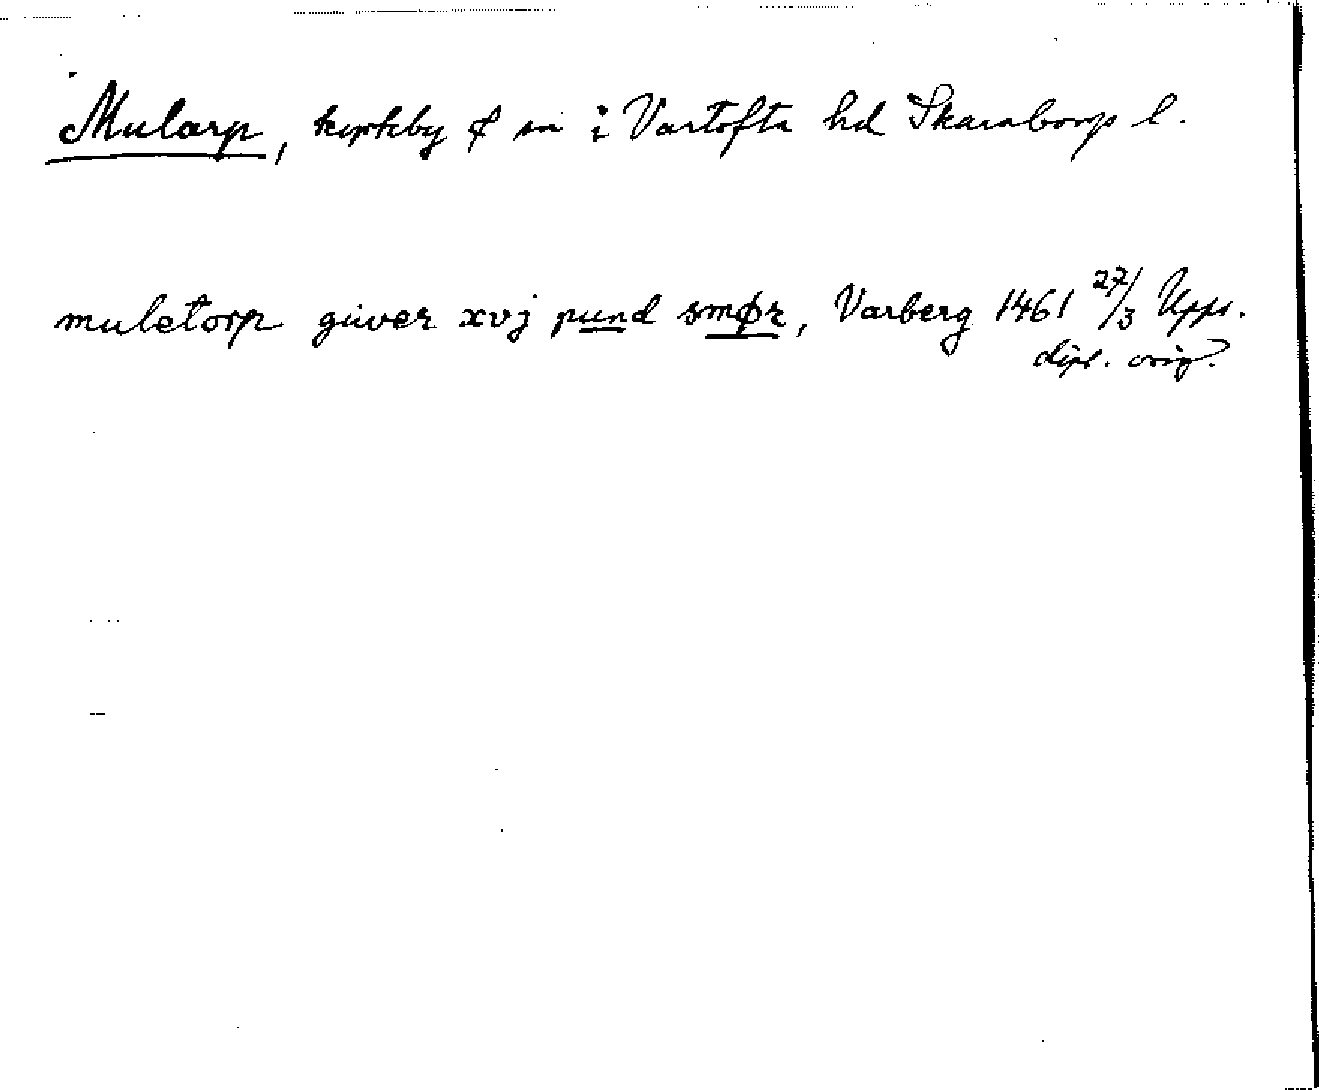 Mularp, kyrkby ₵ sn i Vartofta hd Skaraborgs l.
muletorp giuer xvj pund smør, Varberg 1461 27/3 Upps.
dipl. orig.